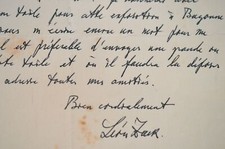 toile pour cette exposition à Bayonne
encore un mot pour me
est préférable d'envoyer une grande ou
toile et où il faudra la déposer
adresse toutes mes amitiés.
Bien cordialement
Léon Zack.